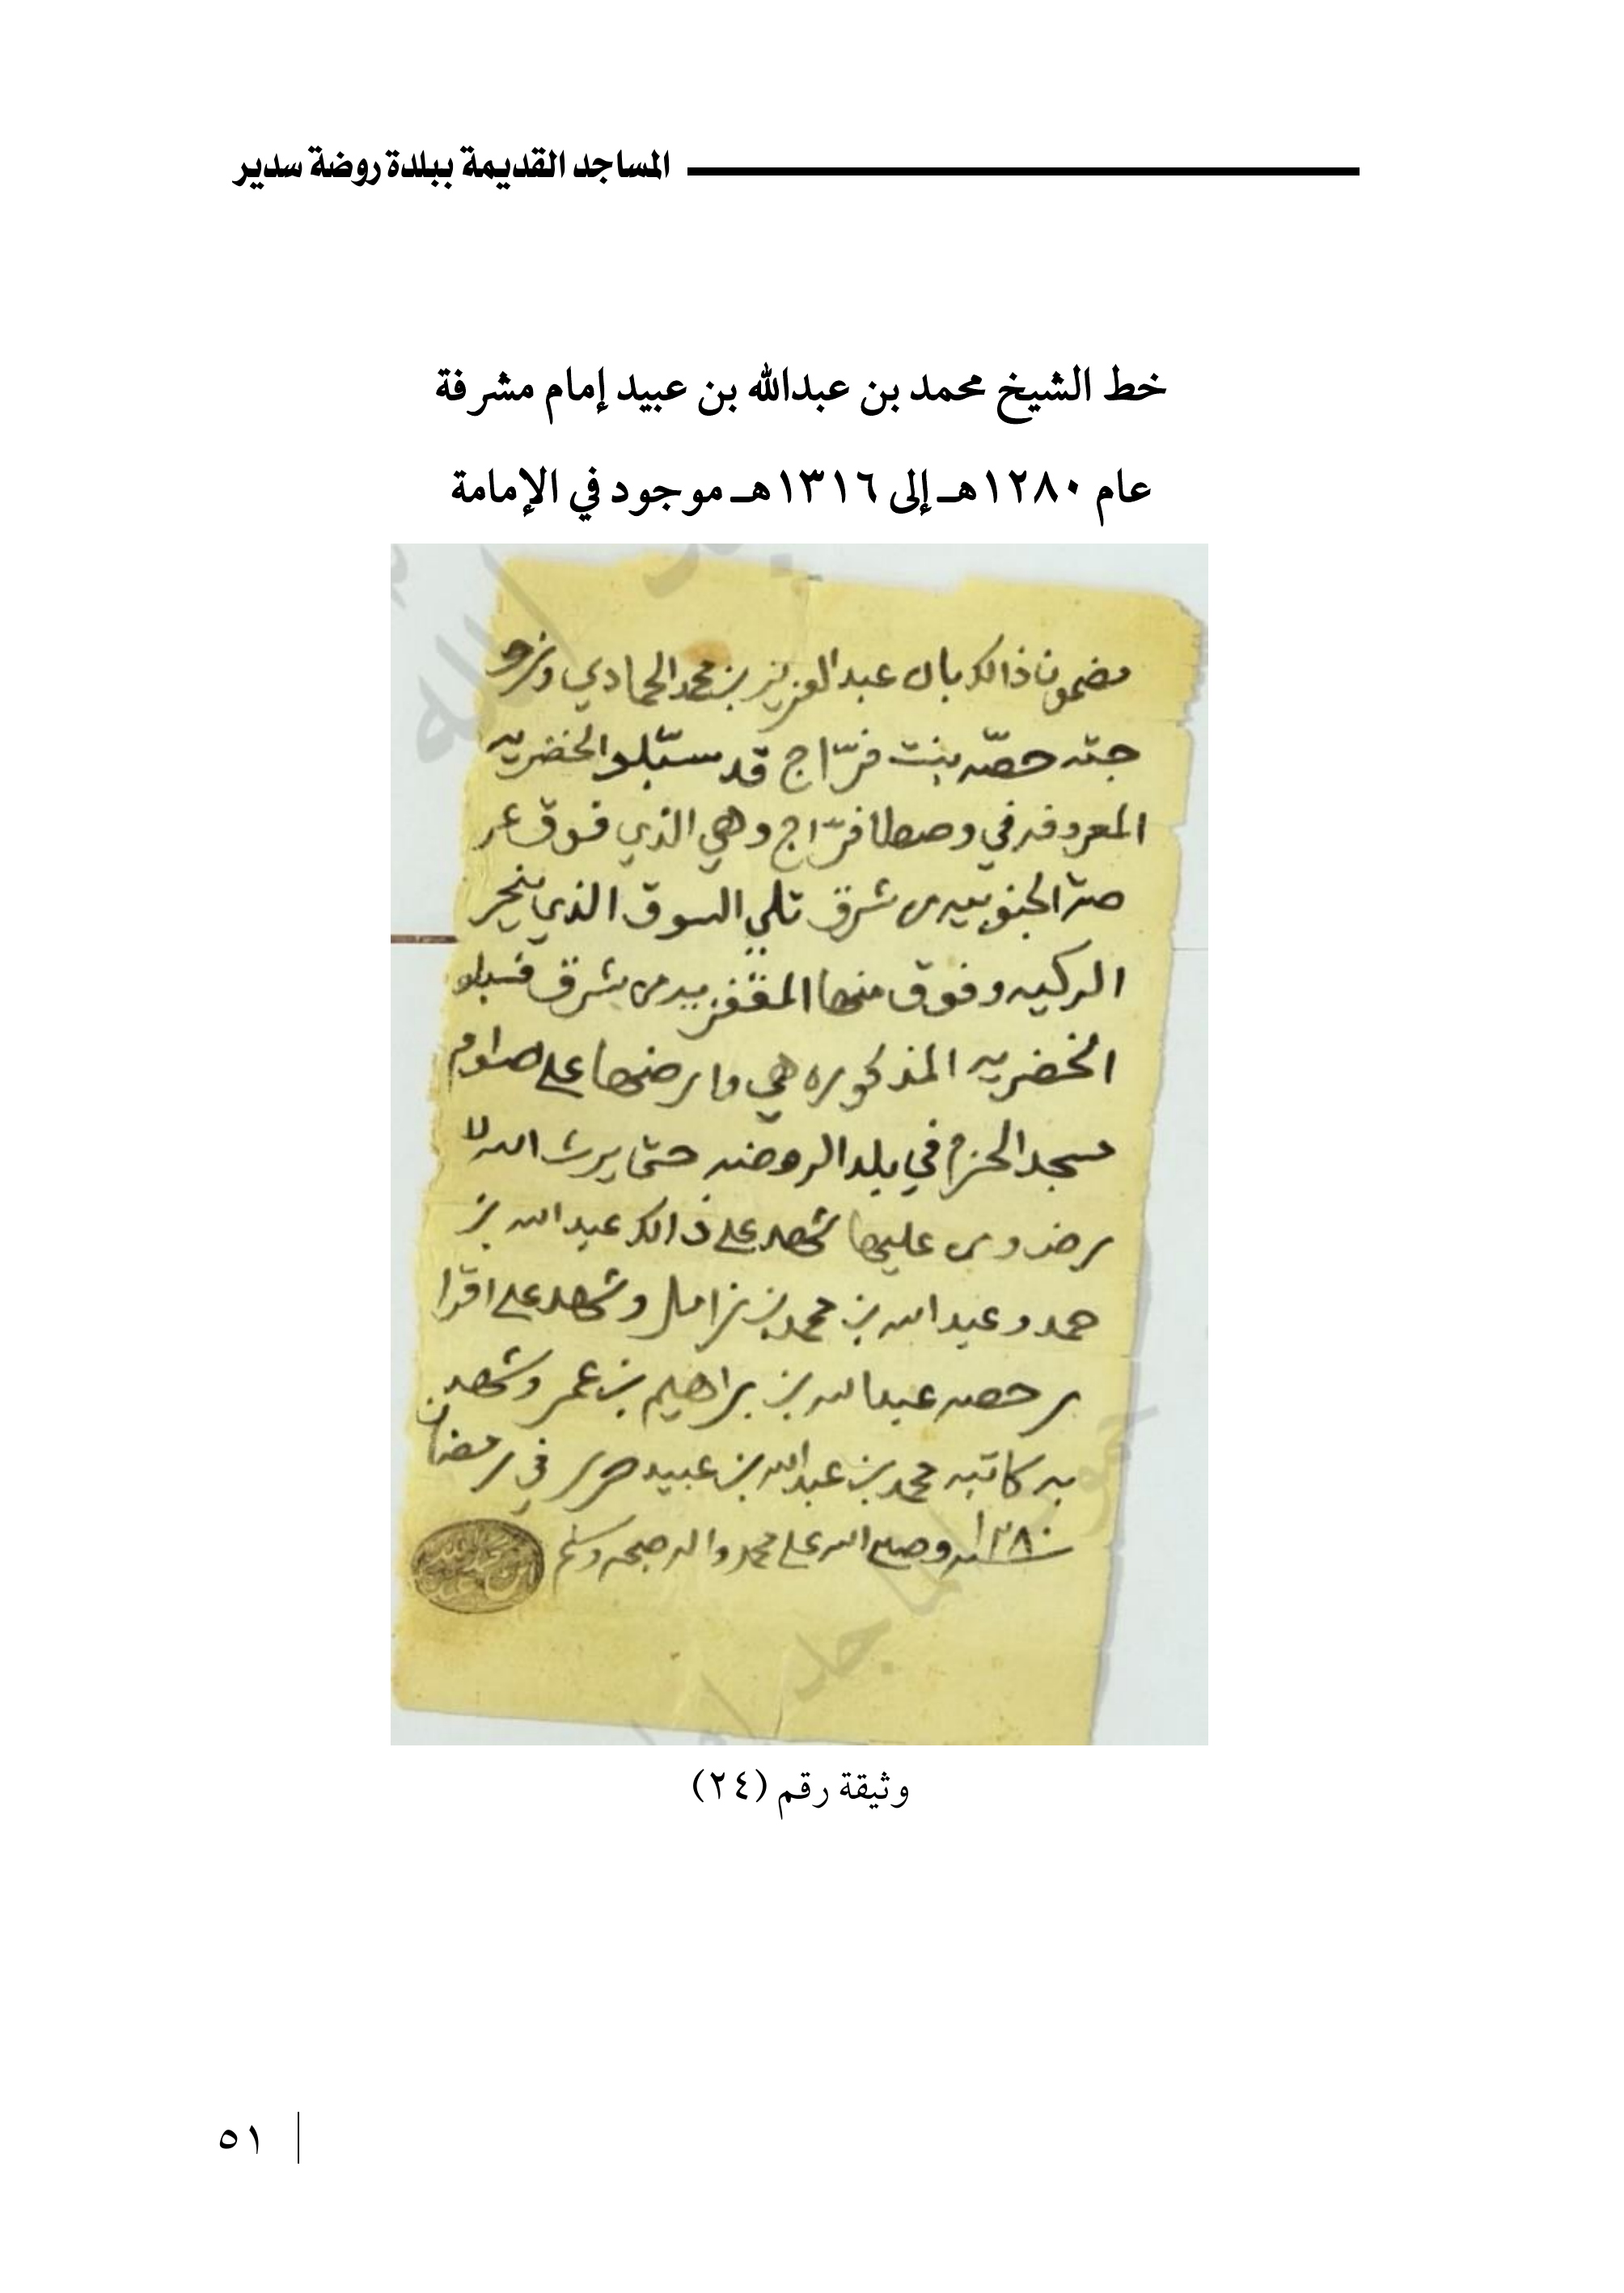 المساجد القديمة ببلدة روضة سدير
خط الشيخ محمد بن عبدالله بن عبيد إمام مشرفة
عام ١٢٨٠هـ إلى ١٣١٦هـ موجود في الإمامة
مضمون ذالك بان عبد العزيز بن محمد الحمادي وزو
جته حصّه بنت فرّاج قد سبّلو الخضريه
المعروفه في وصطا فرّاج وهي الذي فوق عر
صة الجنوبيه من شرق تلي السوق الذي ينحر
الركيه وفوق منها المقفزيه من شرق فسبلو
الخضريه المذكوره هي وارضها على صوام
مسجد الحزم في بلد الروضه حتى يرث الله لا
رض ومن عليها شهد على ذالك عبد الله بن
حمد وعبد الله بن محمد بن زامل وشهد على اقرا
ر حصه عبد الله بن براهيم بن عمر وشهد
به كاتبه محمد بن عبد الله بن عبيد حرر في رمضان
سنة ١٢٨٠ وصلى الله على محمد واله وصحبه وسلم
وثيقة رقم (٢٤)
٥١